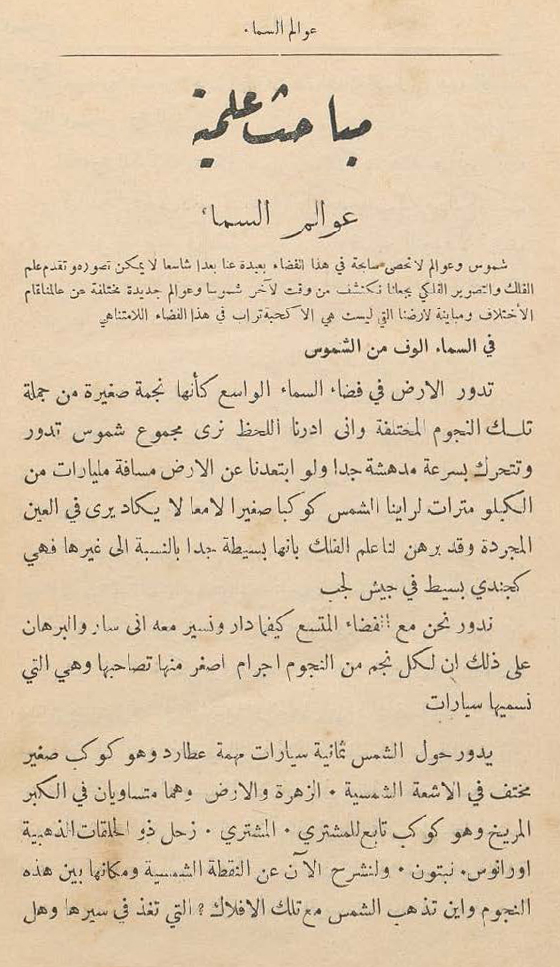 عوالم السماء
مباحث علمية
عوالم السماء
شموس وعوالم لا تحصى سابحة في هذا الفضاء بعيدة عنا بعدا شاسعا لا يمكن تصوره وتقدم علم
الفلك والتصوير الفلكي يجعلنا نكتشف من وقت لآخر شموسا وعوالم جديدة مختلفة عن عالمنا تمام
الأختلاف ومباينة لارضنا التي ليست هي الا كحبة تراب في هذا الفضاء اللامتناهي
في السماء الوف من الشموس
تدور الارض في فضاء السماء الواسع كأنها نجمة صغيرة من جملة
تلك النجوم المختلفة وانى ادرنا اللحظ نرى مجموع شموس تدور
وتتحرك بسرعة مدهشة جدا ولو ابتعدنا عن الارض مسافة مليارات من
الكيلو مترات لراينا الشمس كوكبا صغيرا لامعا لا يكاد يرى في العين
المجردة وقد برهن لنا علم الفلك بانها بسيطة جدا بالنسبة الى غيرها فهي
كجندي بسيط في جيش لجب
ندور نحن مع الفضاء المتسع كيفما دار ونسير معه انى سار والبرهان
على ذلك ان لكل نجم من النجوم اجرام اصغر منها تصاحبها وهي التي
نسميها سيارات
يدور حول الشمس ثمانية سيارات مهمة عطارد وهو كوكب صغير
مختف في الاشعة الشمسية • الزهرة والارض وهما متساويان في الكبر
المريخ وهو كوكب تابع للمشتري • المشتري • زحل ذو الحلقات الذهبية
اورانوس • نبتون • ولنشرح الآن عن النقطة الشمسية ومكانها بين هذه
النجوم واين تذهب الشمس مع تلك الافلاك ؟ التي تغذ في سيرها وهل